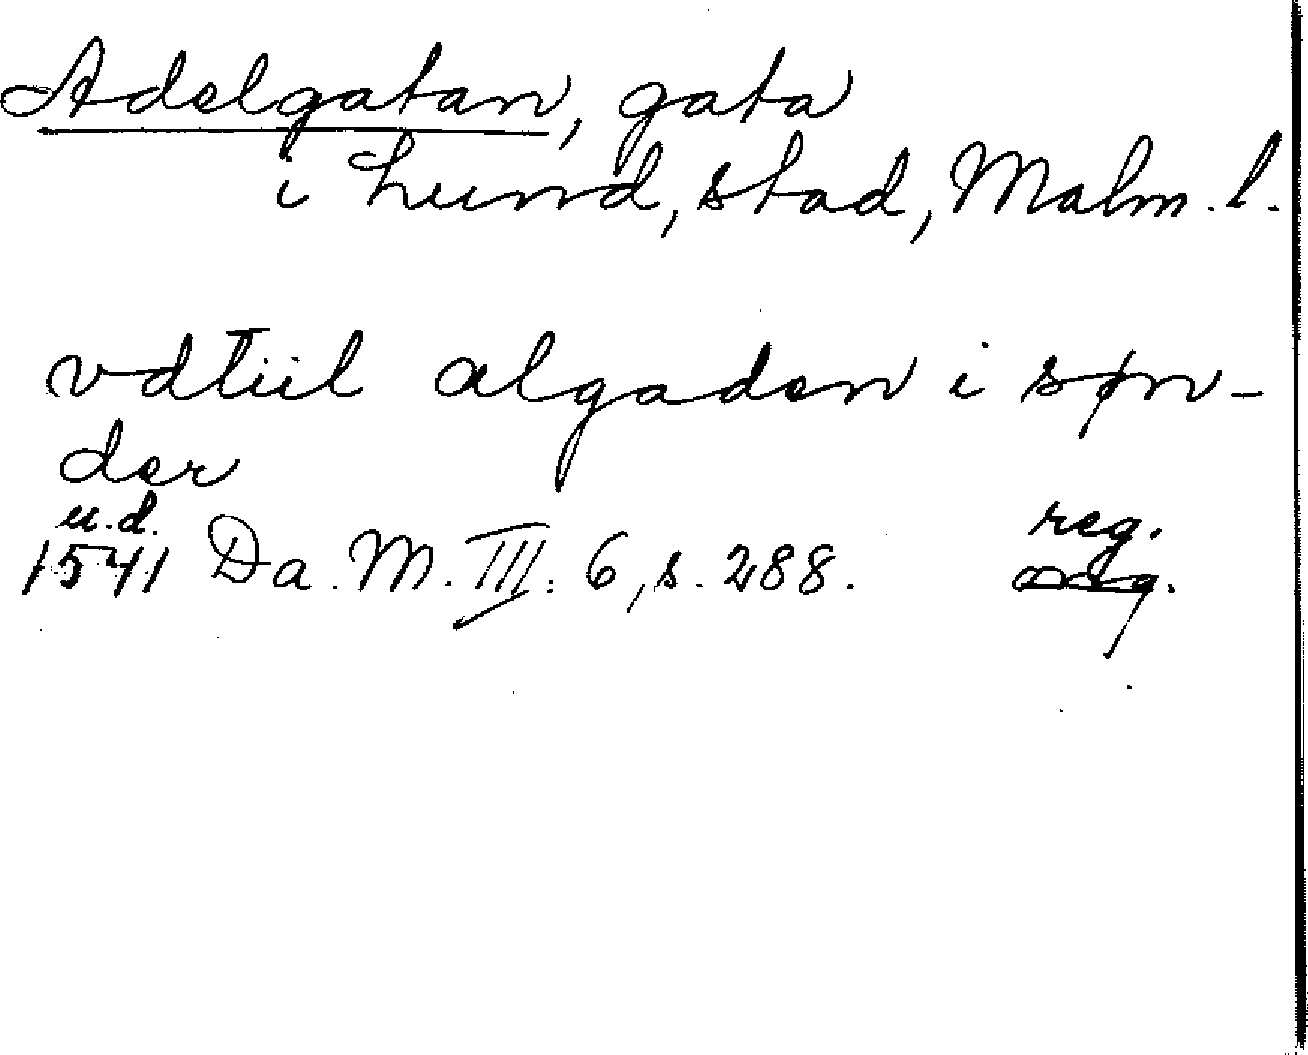 Adelgatan, gata
i Lund, stad, Malm. l.
vdtiil algaden i søn-
der
u.d. reg.
1541 Da. M. III: 6, s. 288. orig.